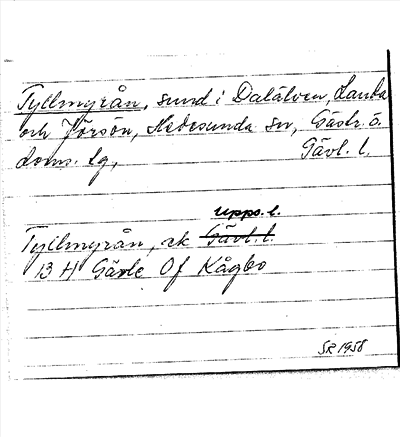 Tyllmyrån, sund i Dalälven, Landa
och Jörsön, Hedesunda sn, Gästr. ö.
doms. lg, Gävl. l.
Upps. l.
Tyllmyrån, rk Gävl. l.
13 H Gävle Of Kågbo
SR 1958